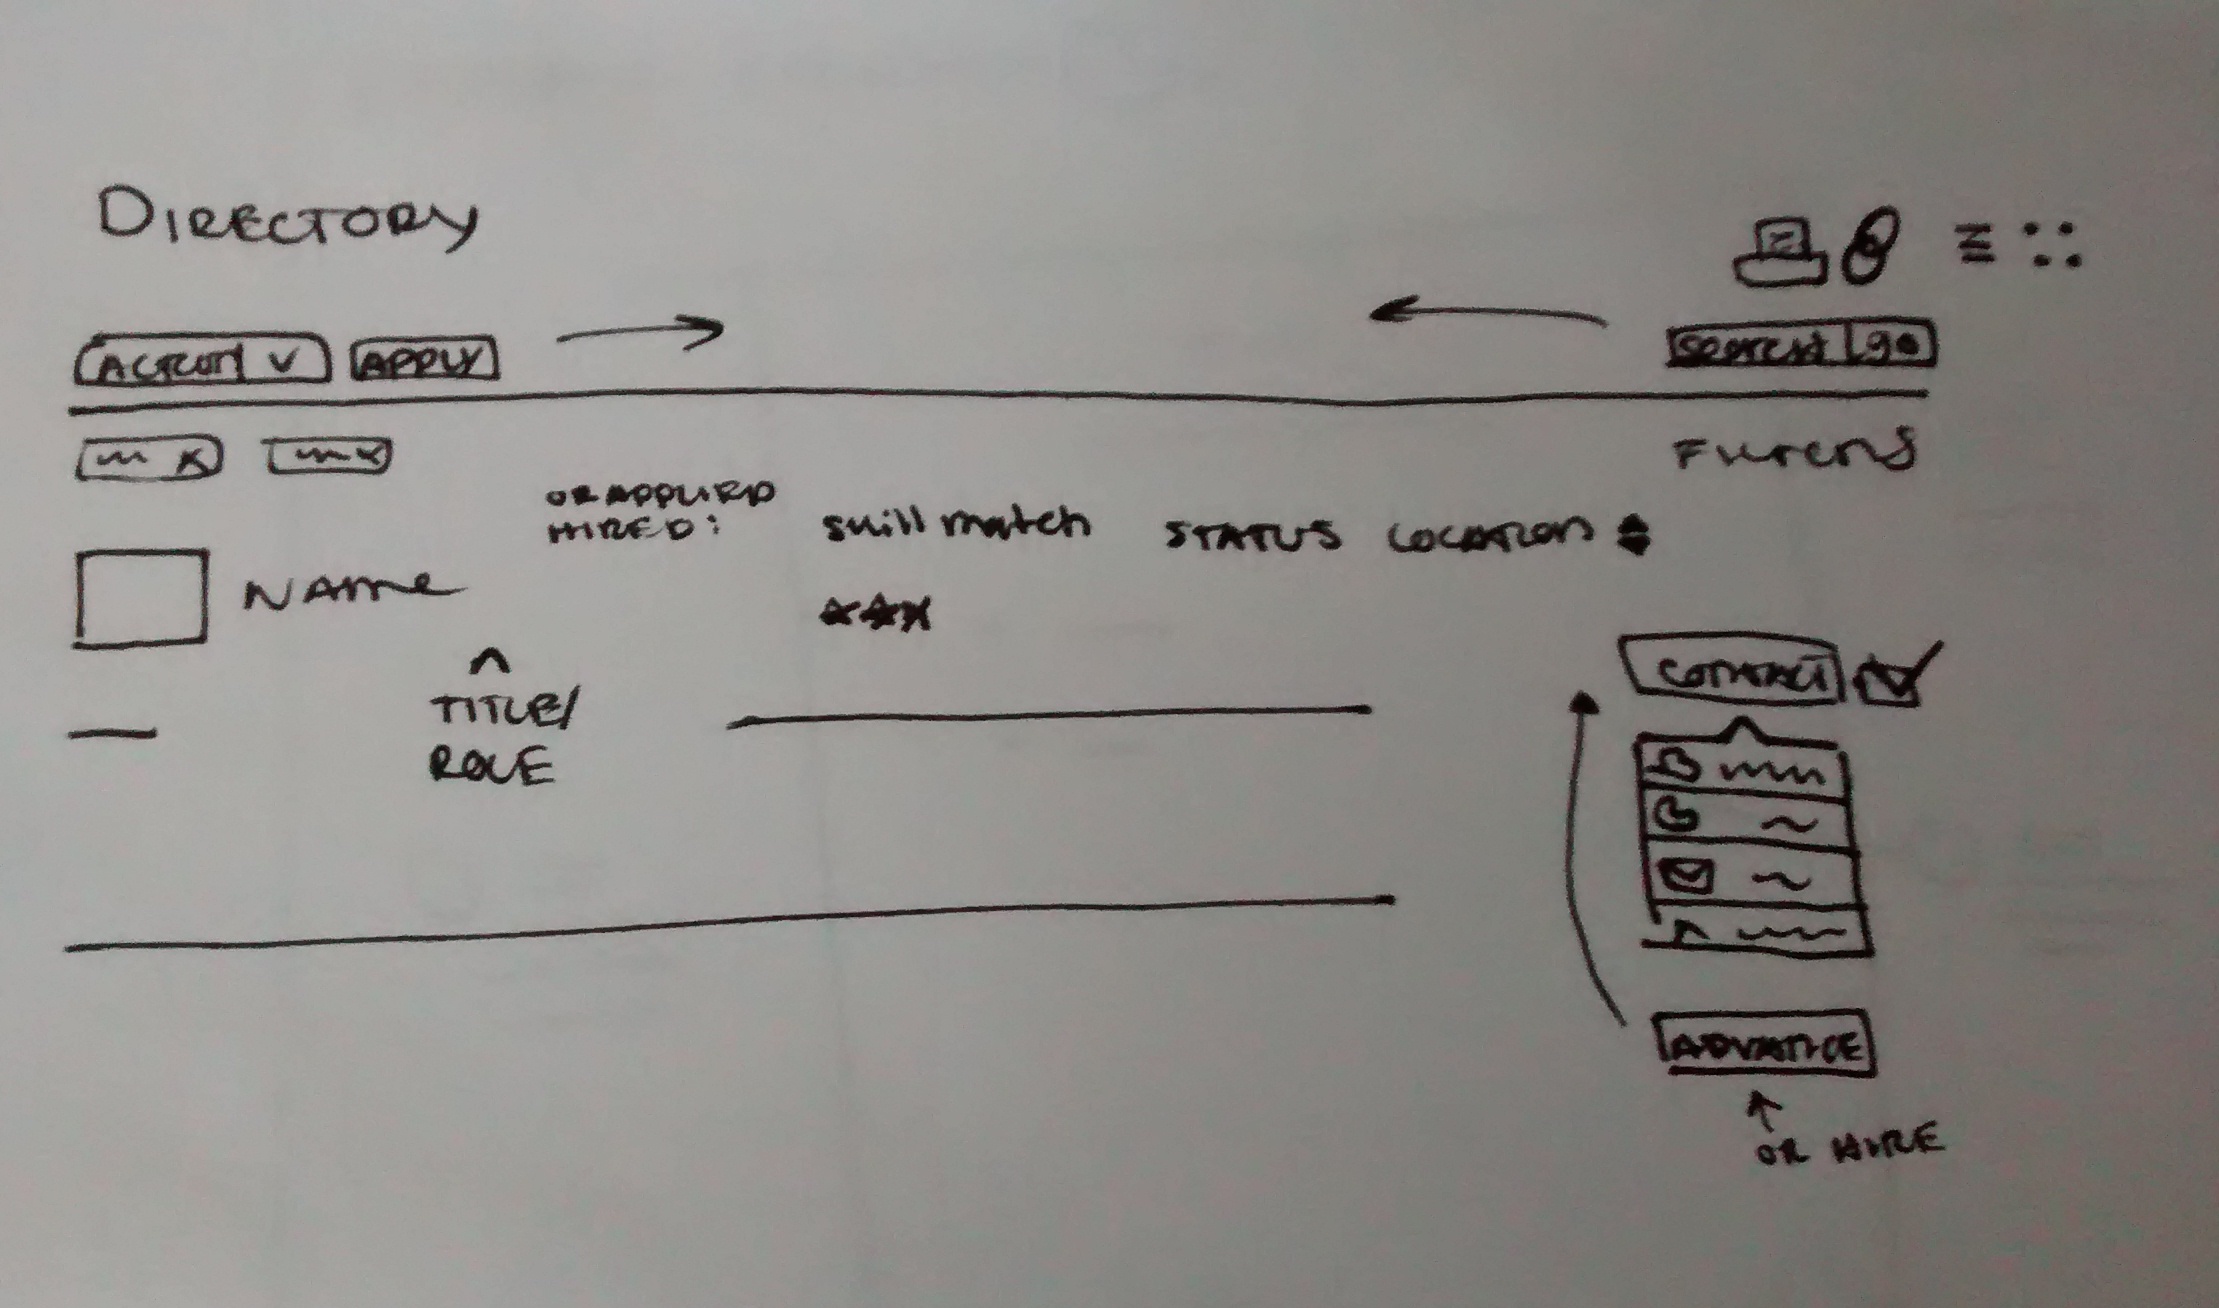 DIRECTORY
ACTION V APPLY
SEARCH go
FILTERS
OR APPLIED
HIRED:
skill match STATUS LOCATION
NAME
TITLE/
ROLE
CONTACT
ADVANCE
OR HIRE